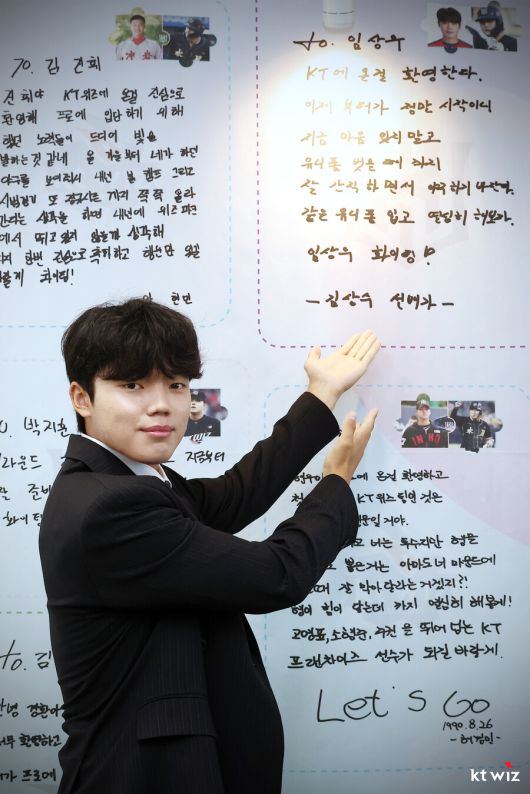 to. 김 건희
건희야 KT위즈에 온걸 진심으로
환영해 프로에 입단하기 위해
했던 노력들이 드디어 빛을
발하는것 같네 올 가을부터 네가 하던
야구를 보여줘서 내년 봄 캠프 그리고
시범경기 또 정규시즌까지 쭉쭉 올라
간다는 생각을 하면 내년에 위즈파크
에서 뛰고 있지 않을까 생각해
다시 한번 진심으로 축하하고
화이팅!
안 현민
to. 임상우
KT에 온걸 환영한다.
이제 부터가 정말 시작이니
지금 마음 잊지 말고
유니폼 벗을 때 까지
잘 간직 하면서 야구하기 바란다.
같은 유니폼 입고 열심히 해보자.
임상우 화이팅!
- 김상수 선배가 -
박지훈
라운드
지금부터
준비
화이팅
온걸 환영하고
KT위즈 팀인 것은
일거야.
너는 투수지만 형을
뽑은거는 아마도 너 마운드에
때 잘 막아달라는거겠지?!
형이 힘이 닿는데 까지 열심히 해볼게!
고영표, 소형준, 주권 을 뛰어 넘는 KT
프랜차이즈 선수가 되길 바랄게.
Let's Go
1990.8.26
- 허경민 -
to. 김
안녕
너무 환영하고
프로에
kt wiz